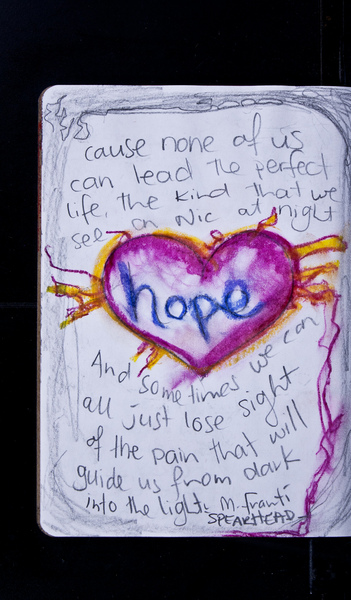 cause none of us
can lead the perfect
life, the kind that we
see on Nic at night
hope
And sometimes we can
all just lose sight
of the pain that will
guide us from dark
into the light. M. Franti
SPEARHEAD